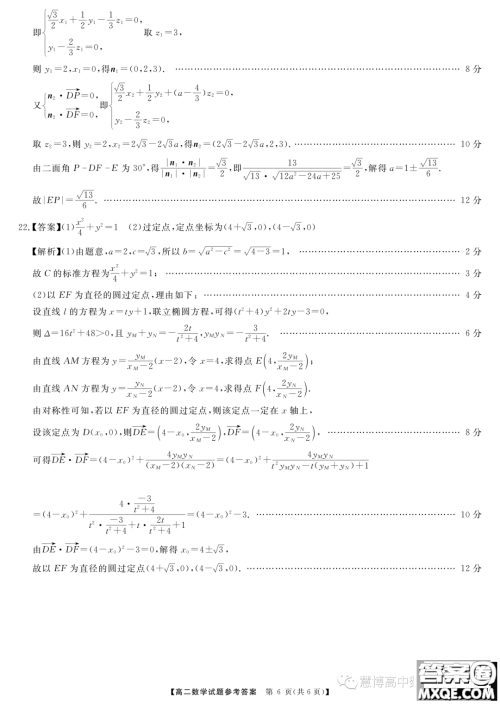 即{√3/2 x₁+1/2 y₁-1/3 z₁=0, y₁-2/3 z₁=0, 取 z₁=3,
则 y₁=2,x₁=0,得n₁=(0,2,3). 8 分
又{n₂·DP=0, n₂·DF=0, 即{√3/2 x₂+1/2 y₂+(a-4/3)z₂=0, y₂-2/3 z₂=0,
取 z₂=3,则 y₂=2,x₂=2√3-2√3a,得n₂=(2√3-2√3a,2,3). 10 分
由二面角 P-DF-E 为 30°,得|n₁·n₂|/(|n₁|·|n₂|)=√3/2,即13/(√13·√(12a²-24a+25))=√3/2,解得 a=1±√13/6.
故|EP|=√13/6. 12 分
22.【答案】(1)x²/4+y²=1 (2)过定点,定点坐标为(4+√3,0),(4-√3,0)
【解析】(1)由题意,a=2,c=√3,所以 b=√(a²-c²)=√(4-3)=1, 2 分
故 C 的标准方程为x²/4+y²=1; 3 分
(2)以 EF 为直径的圆过定点,理由如下: 4 分
设直线 l 的方程为 x=ty+1,联立椭圆方程,可得(t²+4)y²+2ty-3=0,
则 Δ=16t²+48>0,且 y_M+y_N=-2t/(t²+4),y_M y_N=-3/(t²+4). 6 分
由直线 AM 方程为 y=y_M/(x_M-2)(x-2),令 x=4,求得点 E(4,2y_M/(x_M-2));
由直线 AN 方程为 y=y_N/(x_N-2)(x-2),令 x=4,求得点 F(4,2y_N/(x_N-2)).
由对称性可知,若以 EF 为直径的圆过定点,则该定点一定在 x 轴上,
设该定点为 D(x₀,0),则DE=(4-x₀,2y_M/(x_M-2)),DF=(4-x₀,2y_N/(x_N-2)), 8 分
可得DE·DF=(4-x₀)²+4y_M y_N/((x_M-2)(x_N-2))=(4-x₀)²+4y_M y_N/(t²y_M y_N-t(y_M+y_N)+1)
=(4-x₀)²+(4·-3/(t²+4))/(t²·-3/(t²+4)+t·2t/(t²+4)+1)=(4-x₀)²-3. 10 分
由DE·DF=(4-x₀)²-3=0,解得 x₀=4±√3,
故以 EF 为直径的圆过定点(4+√3,0),(4-√3,0). 12 分
【高二数学试题参考答案 第 6 页(共 6 页)】
慧博高中数
答案圈
MXQE.COM